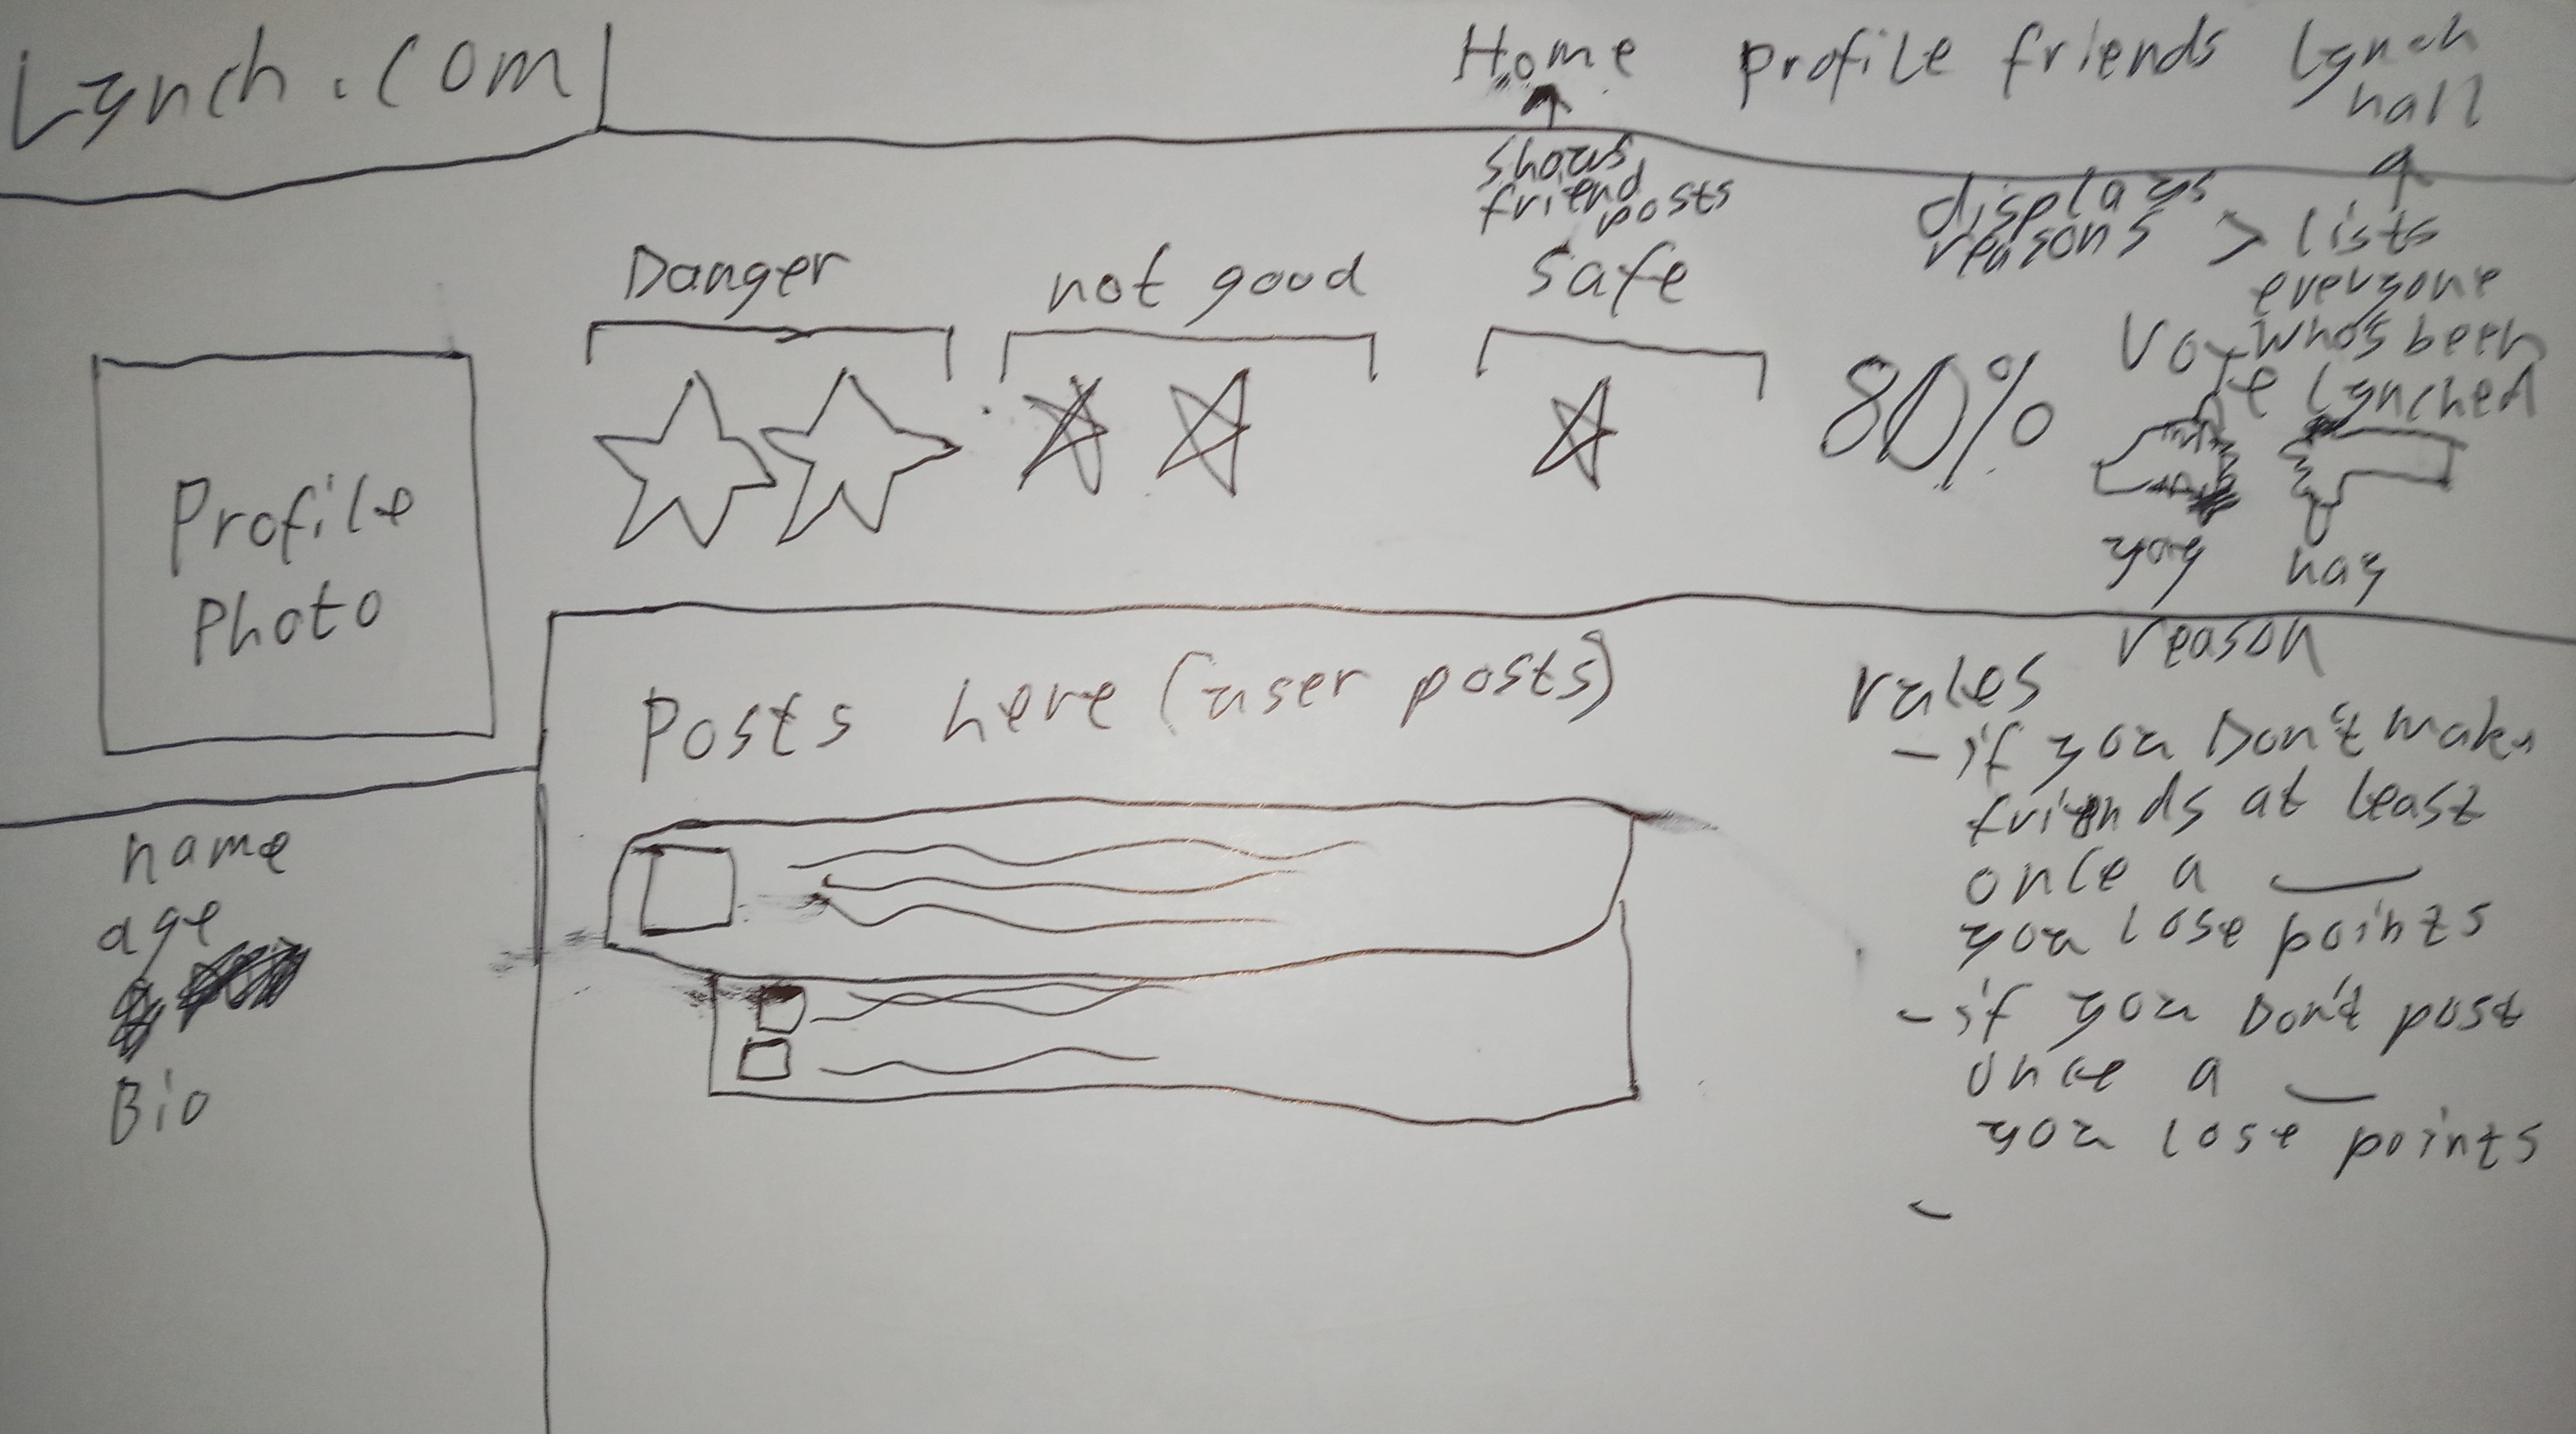 Lynch.com
Home profile friends lynch
hall
shows
friend
posts
displays
reasons > lists
everyone
who's been
lynched
Danger not good safe
80%
Vote
yay nay
reason
Profile
Photo
name
age
Bio
Posts here (user posts)
rules
- if you Don't make
friends at least
once a __
you lose points
- if you Don't post
once a __
you lose points
-